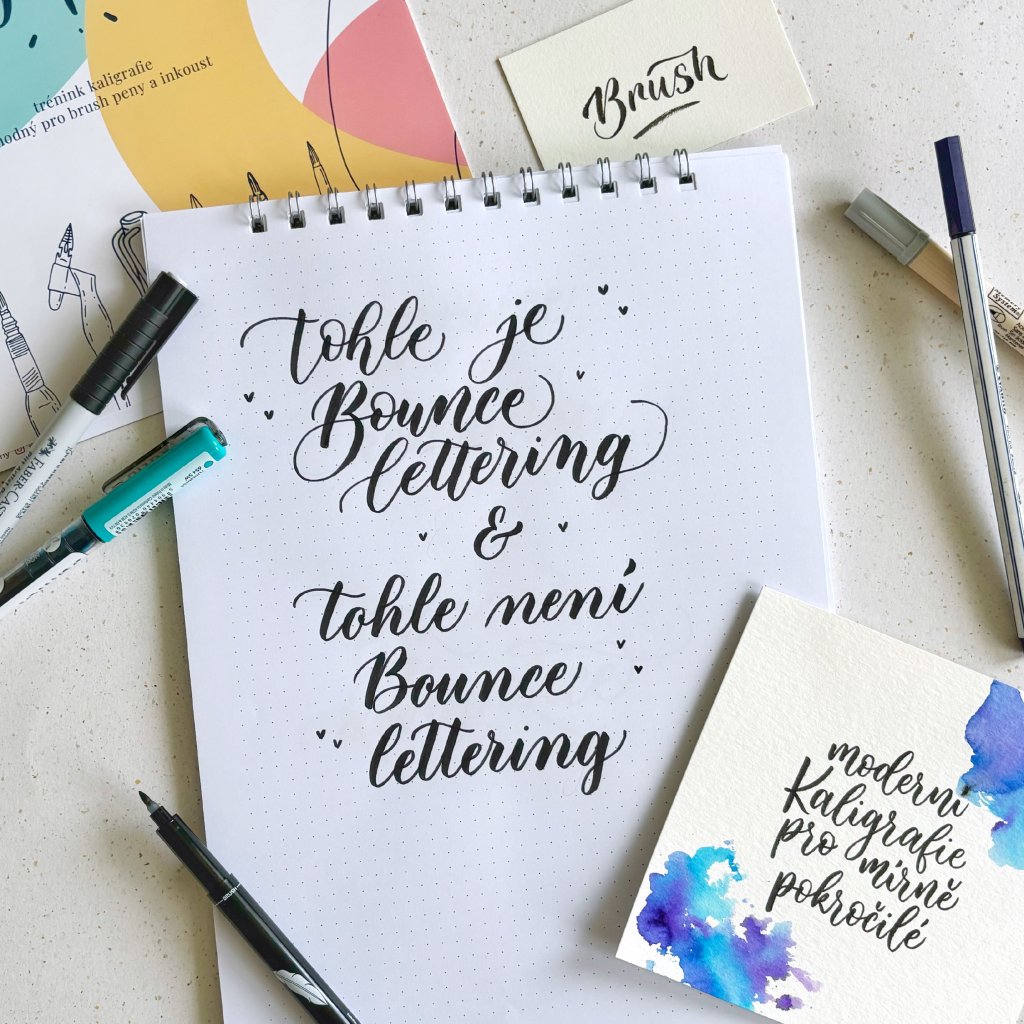 trénink kaligrafie
hodný pro brush peny a inkoust
Brush
tohle je
Bounce
lettering
&
tohle není
Bounce
lettering
moderní
Kaligrafie
pro mírně
pokročilé
FABER-CAST